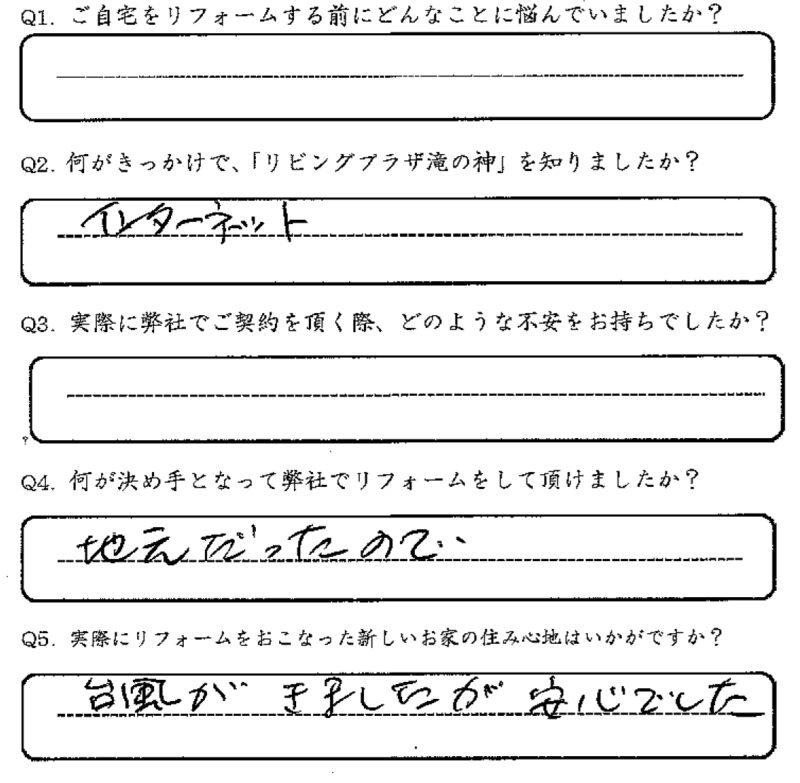 Q1. ご自宅をリフォームする前にどんなことに悩んでいましたか？
Q2. 何がきっかけで、「リビングプラザ滝の神」を知りましたか？
インターネット
Q3. 実際に弊社でご契約を頂く際、どのような不安をお持ちでしたか？
?
Q4. 何が決め手となって弊社でリフォームをして頂けましたか？
地元だったので
Q5. 実際にリフォームをおこなった新しいお家の住み心地はいかがですか？
台風がきましたが安心でした